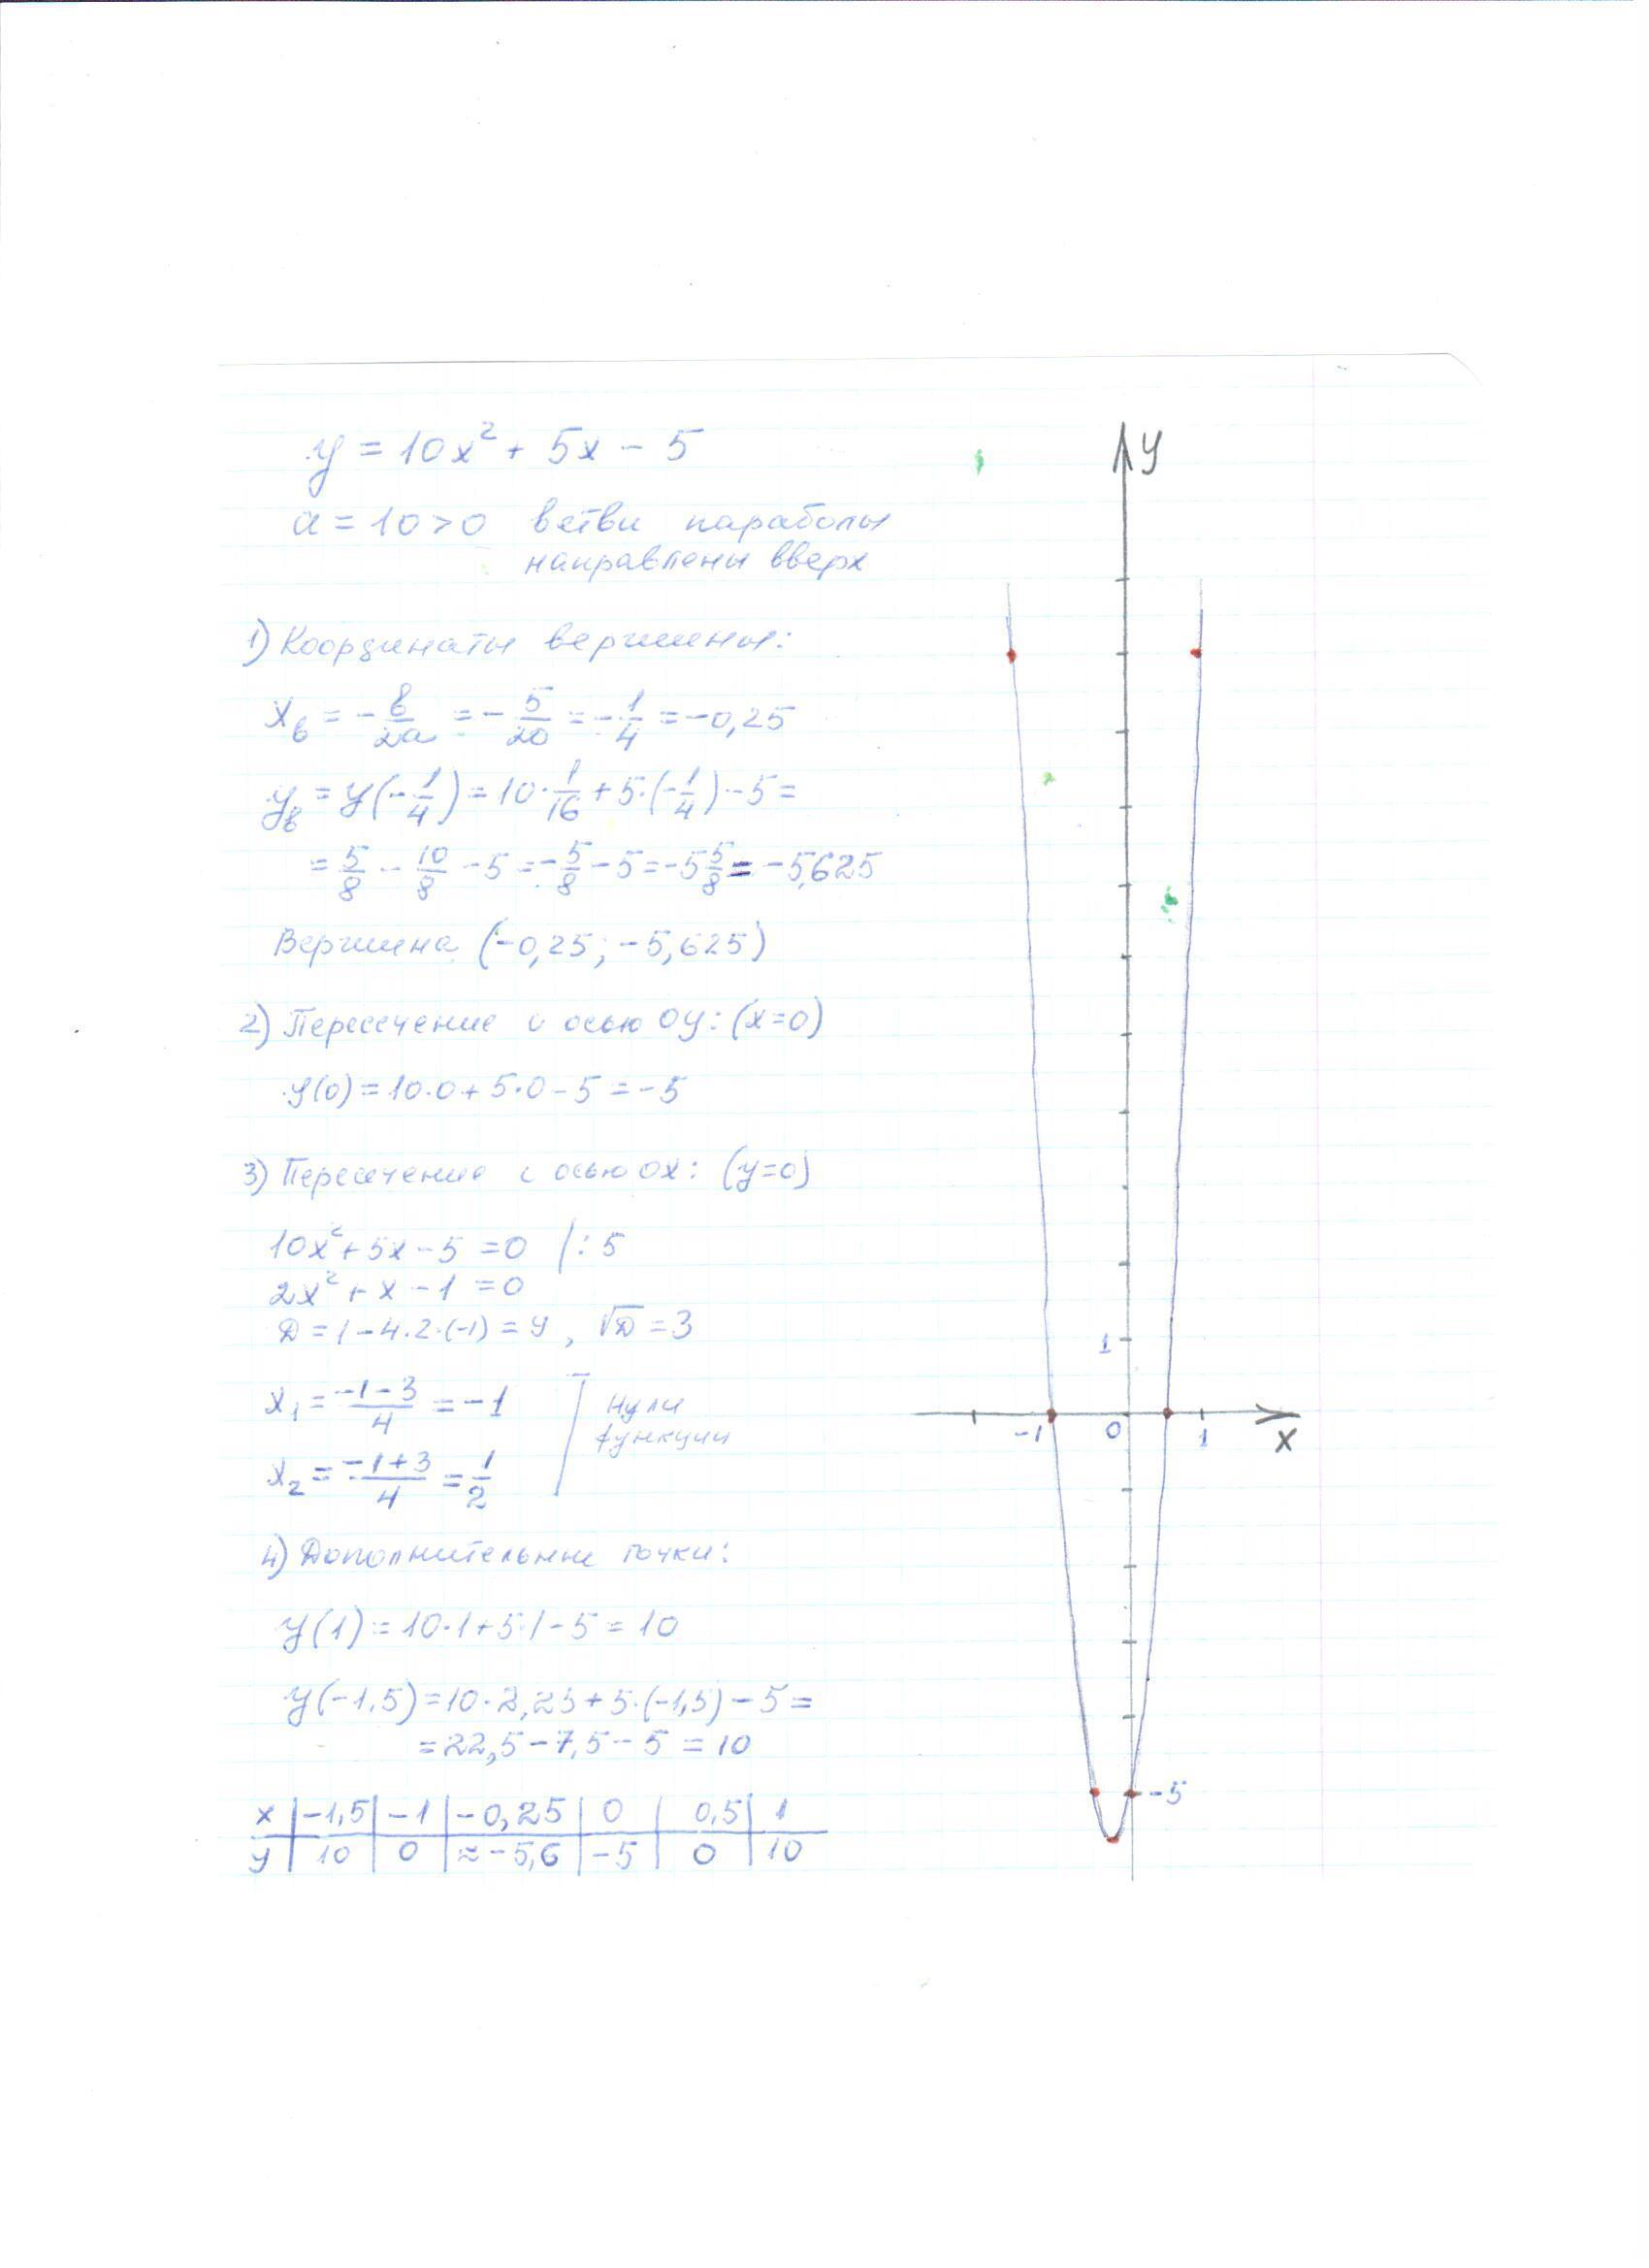 y = 10x² + 5x - 5
a = 10 > 0 ветви параболы
направлены вверх
1) Координаты вершины:
xв = -в/2a = -5/20 = -1/4 = -0,25
yв = y(-1/4) = 10·1/16 + 5·(-1/4) - 5 =
= 5/8 - 10/8 - 5 = -5/8 - 5 = -5 5/8 = -5,625
Вершина (-0,25; -5,625)
2) Пересечение с осью ОУ: (x=0)
y(0) = 10·0 + 5·0 - 5 = -5
3) Пересечение с осью ОХ: (y=0)
10x² + 5x - 5 = 0 |:5
2x² + x - 1 = 0
D = 1 - 4·2·(-1) = 9, √D = 3
x₁ = (-1-3)/4 = -1
x₂ = (-1+3)/4 = 1/2
Нули
функции
4) Дополнительные точки:
y(1) = 10·1 + 5·1 - 5 = 10
y(-1,5) = 10·2,25 + 5·(-1,5) - 5 =
= 22,5 - 7,5 - 5 = 10
x | -1,5 | -1 | -0,25 | 0 | 0,5 | 1
y | 10 | 0 | ≈ -5,6 | -5 | 0 | 10
y
1
-1 0 1 x
-5